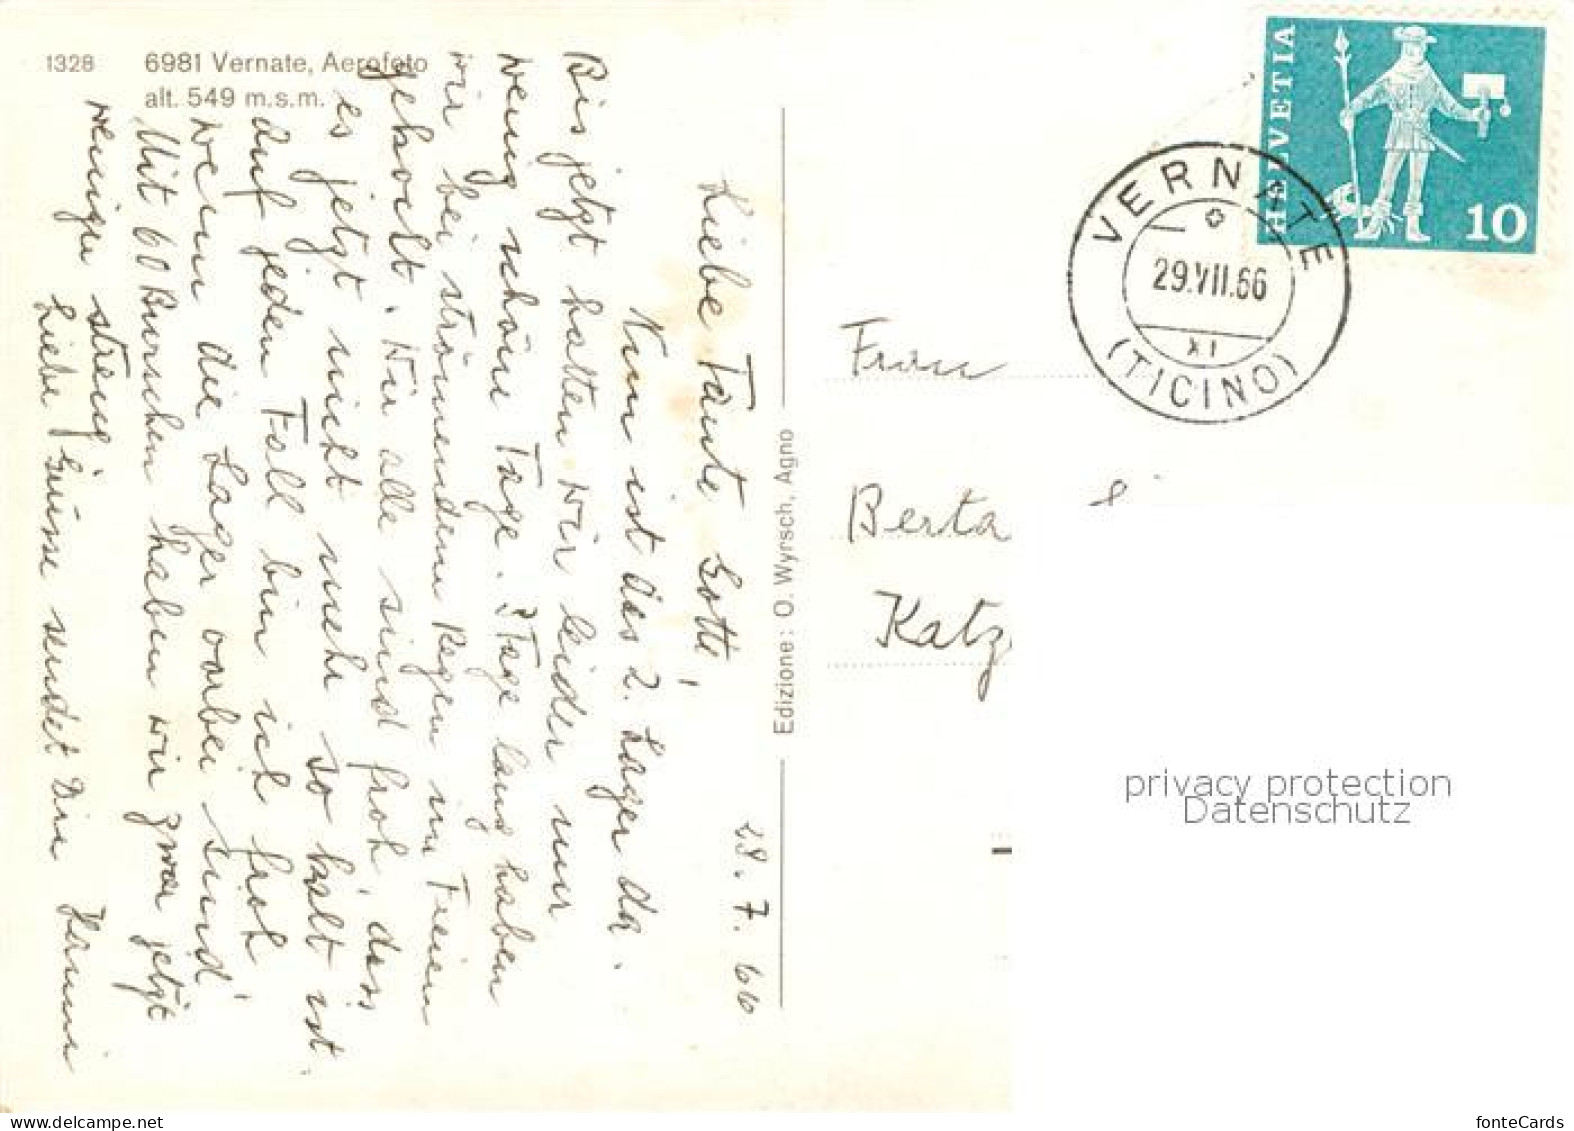 1328 6981 Vernate, Aerofoto
alt. 549 m.s.m.
28.7.66
Liebe Tante Gotte,
Nun ist das 2. Lager da.
Bis jetzt hatten wir leider nur
wenig schöne Tage. 3 Tage lang haben
wir bei strömendem Regen im Freien
gekocht. Wir alle sind froh, dass
es jetzt nicht mehr so kalt ist.
Auf jeden Fall bin ich froh
wenn die Lager vorbei sind!
Mit 60 Burschen haben wir zwar jetzt
weniger streng.
Liebe Grüsse sendet Dir Hanni
Edizione: O. Wyrsch, Agno
HELVETIA
10
VERNATE
29.VII.66
XI
(TICINO)
Frau
Berta
Katz
privacy protection
Datenschutz
fonteCards